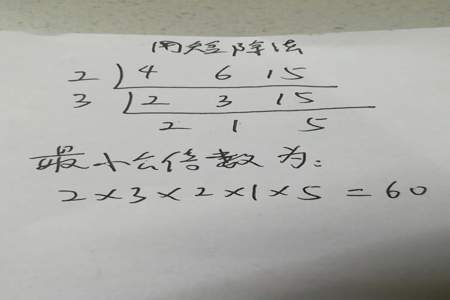 用短除法
2 ) 4 6 15
3 ) 2 3 15
2 1 5
最小公倍数为:
2×3×2×1×5=60